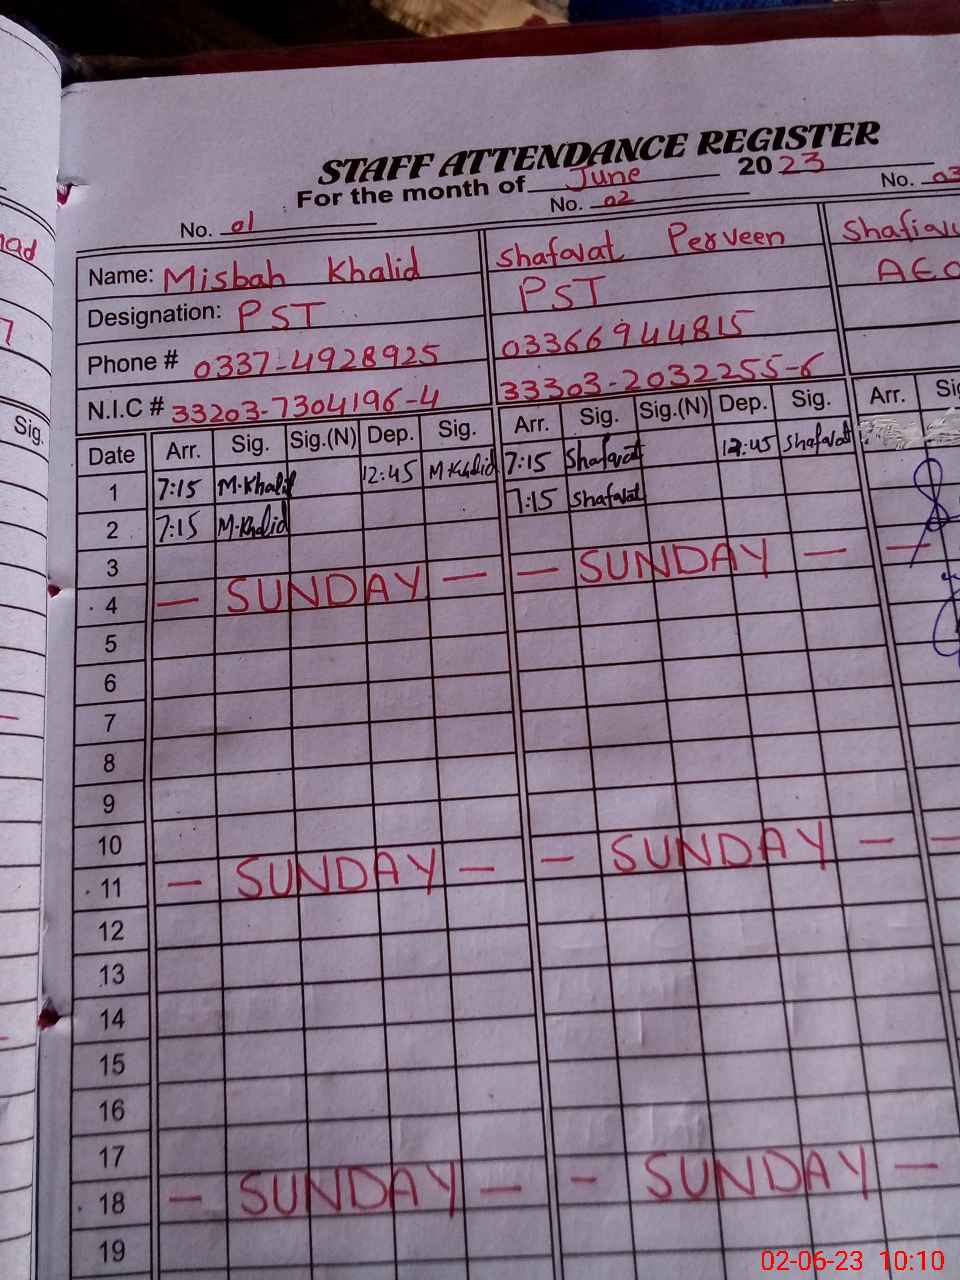 STAFF ATTENDANCE REGISTER
For the month of June 2023
No. 01 No. 02 No. 03
Name: Misbah Khalid Shafavat Perveen
Designation: PST PST AEO
Phone # 0337-4928925 03366944815
N.I.C # 33203-7304196-4 33303-2032255-6
Sig.
Date Arr. Sig. Sig.(N) Dep. Sig. Arr. Sig. Sig.(N) Dep. Sig. Arr.
1 7:15 M.Khalid 12:45 M.Khalid 7:15 Shafavat 12:45 Shafavat
2 7:15 M.Khalid 7:15 Shafavat
3
4 — SUNDAY — — SUNDAY — —
5
6
7
8
9
10
11 — SUNDAY — — SUNDAY — —
12
13
14
15
16
17
18 — SUNDAY — - SUNDAY —
19
02-06-23 10:10